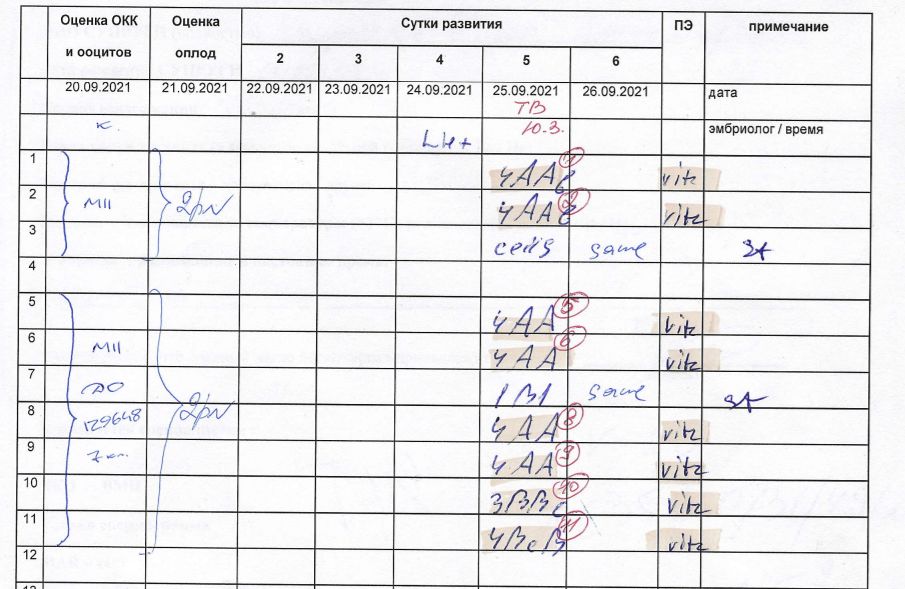 Оценка ОКК и ооцитов Оценка оплод Сутки развития ПЭ примечание
2 3 4 5 6
20.09.2021 21.09.2021 22.09.2021 23.09.2021 24.09.2021 25.09.2021 26.09.2021 дата
ТВ
к. LH+ Ю.З. эмбриолог / время
1 4AA 1 vitz
2 MII 2pN 4AA 2 vitz
3 cells same
4
5 4AA 5 vitz
6 MII 4AA 6 vitz
7 ДО 1B1 same
8 129648 2pN 4AA 8 vitz
9 4AA 9 vitz
10 3BBc 10 vitz
11 4BcB 11 vitz
12